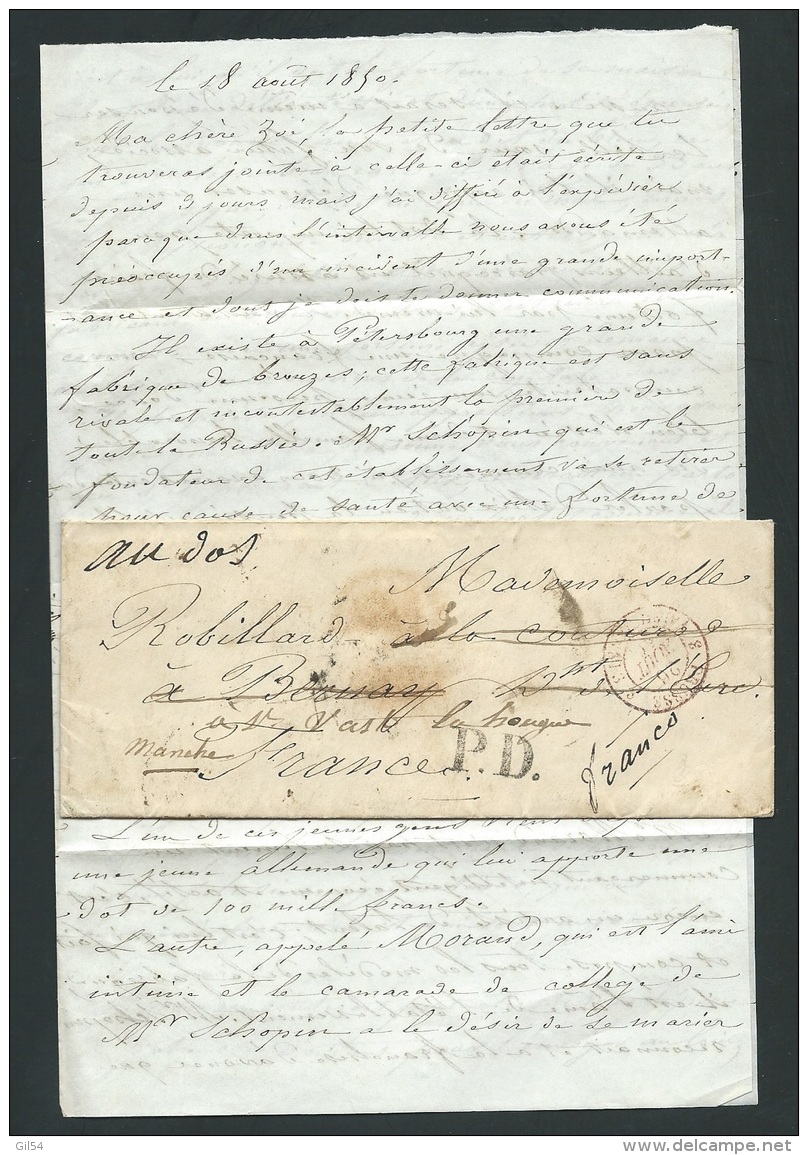 le 18 août 1850.
Ma chère Zoé, la petite lettre que tu
trouveras jointe à celle-ci était écrite
depuis 3 jours mais j'ai différé à l'expédier
parceque dans l'intervalle nous avons été
préoccupés d'un incident d'une grande import-
ance et dont je dois te donner communication.
Il existe à Pétersbourg une grande
fabrique de bronzes; cette fabrique est sans
rivale et incontestablement la première de
toute la Russie. Mr Schopin qui est le
fondateur de cet établissement va se retirer
pour cause de santé avec une fortune de
au dos
Mademoiselle
Robillard à la couture
à Bernay
a St Vast la hougue
Manche
France.
P.D.
franco
L'un de ces jeunes gens
une jeune allemande qui lui apporte une
dot de 100 mille francs.
L'autre, appelé Morand, qui est l'ami
intime et le camarade de collége de
Mr Schopin a le désir de se marier
Gil54
www.delcampe.net